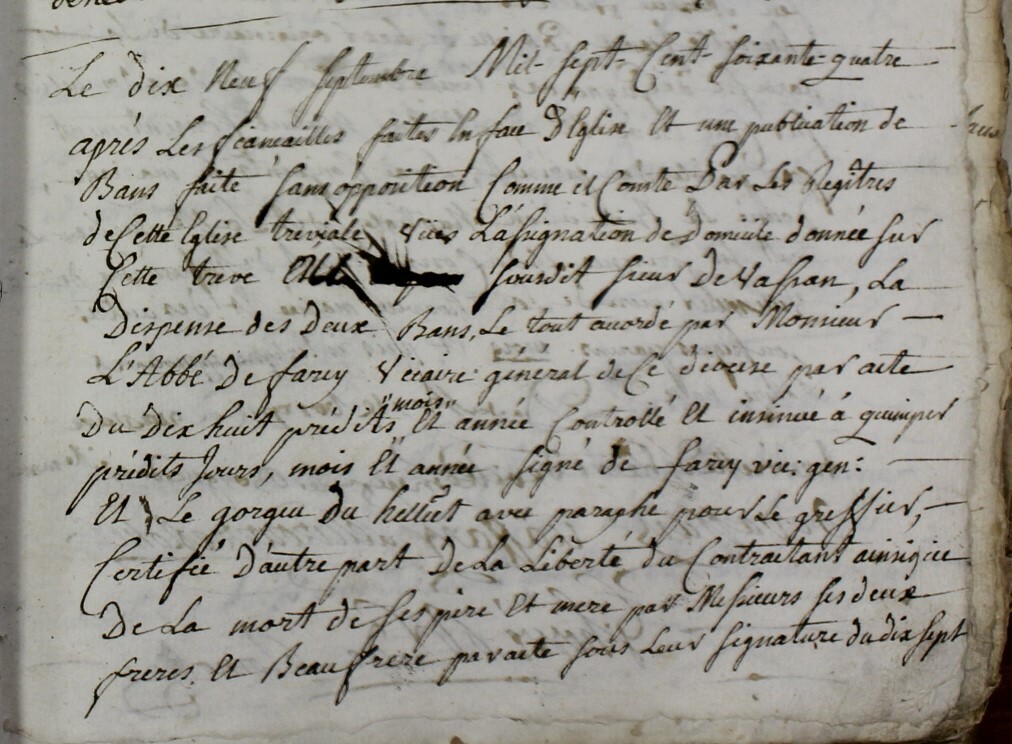 Le dix Neuf Septembre Mil Sept Cent Soixante quatre
après Les fiancailles faites En face d'Eglise Et une publication de
Bans faite sans opposition Comme il Conste Par Les Regîtres
de Cette Eglise treviale vües L'assignation de Domicile donnée sur
Cette treve susdit sieur de vassan, La
Dispense des deux Bans, Le tout accordé par Monsieur
L'Abbé De farcy viccaire général de Ce diocese par acte
Du Dix huit prédits "mois" Et année Controllé Et insinué à quimper
prédits Jours, mois Et année signé de farcy vic: gen:
Et Le gorgeu Du helliet avec paraphe pour Le greffier,
Certifié D'autre part De La Liberté du Contractant ainsi que
De La mort de Ses père Et mere par Messieurs ses deux
freres Et Beaufrere par acte sous Leur signature du dix sept